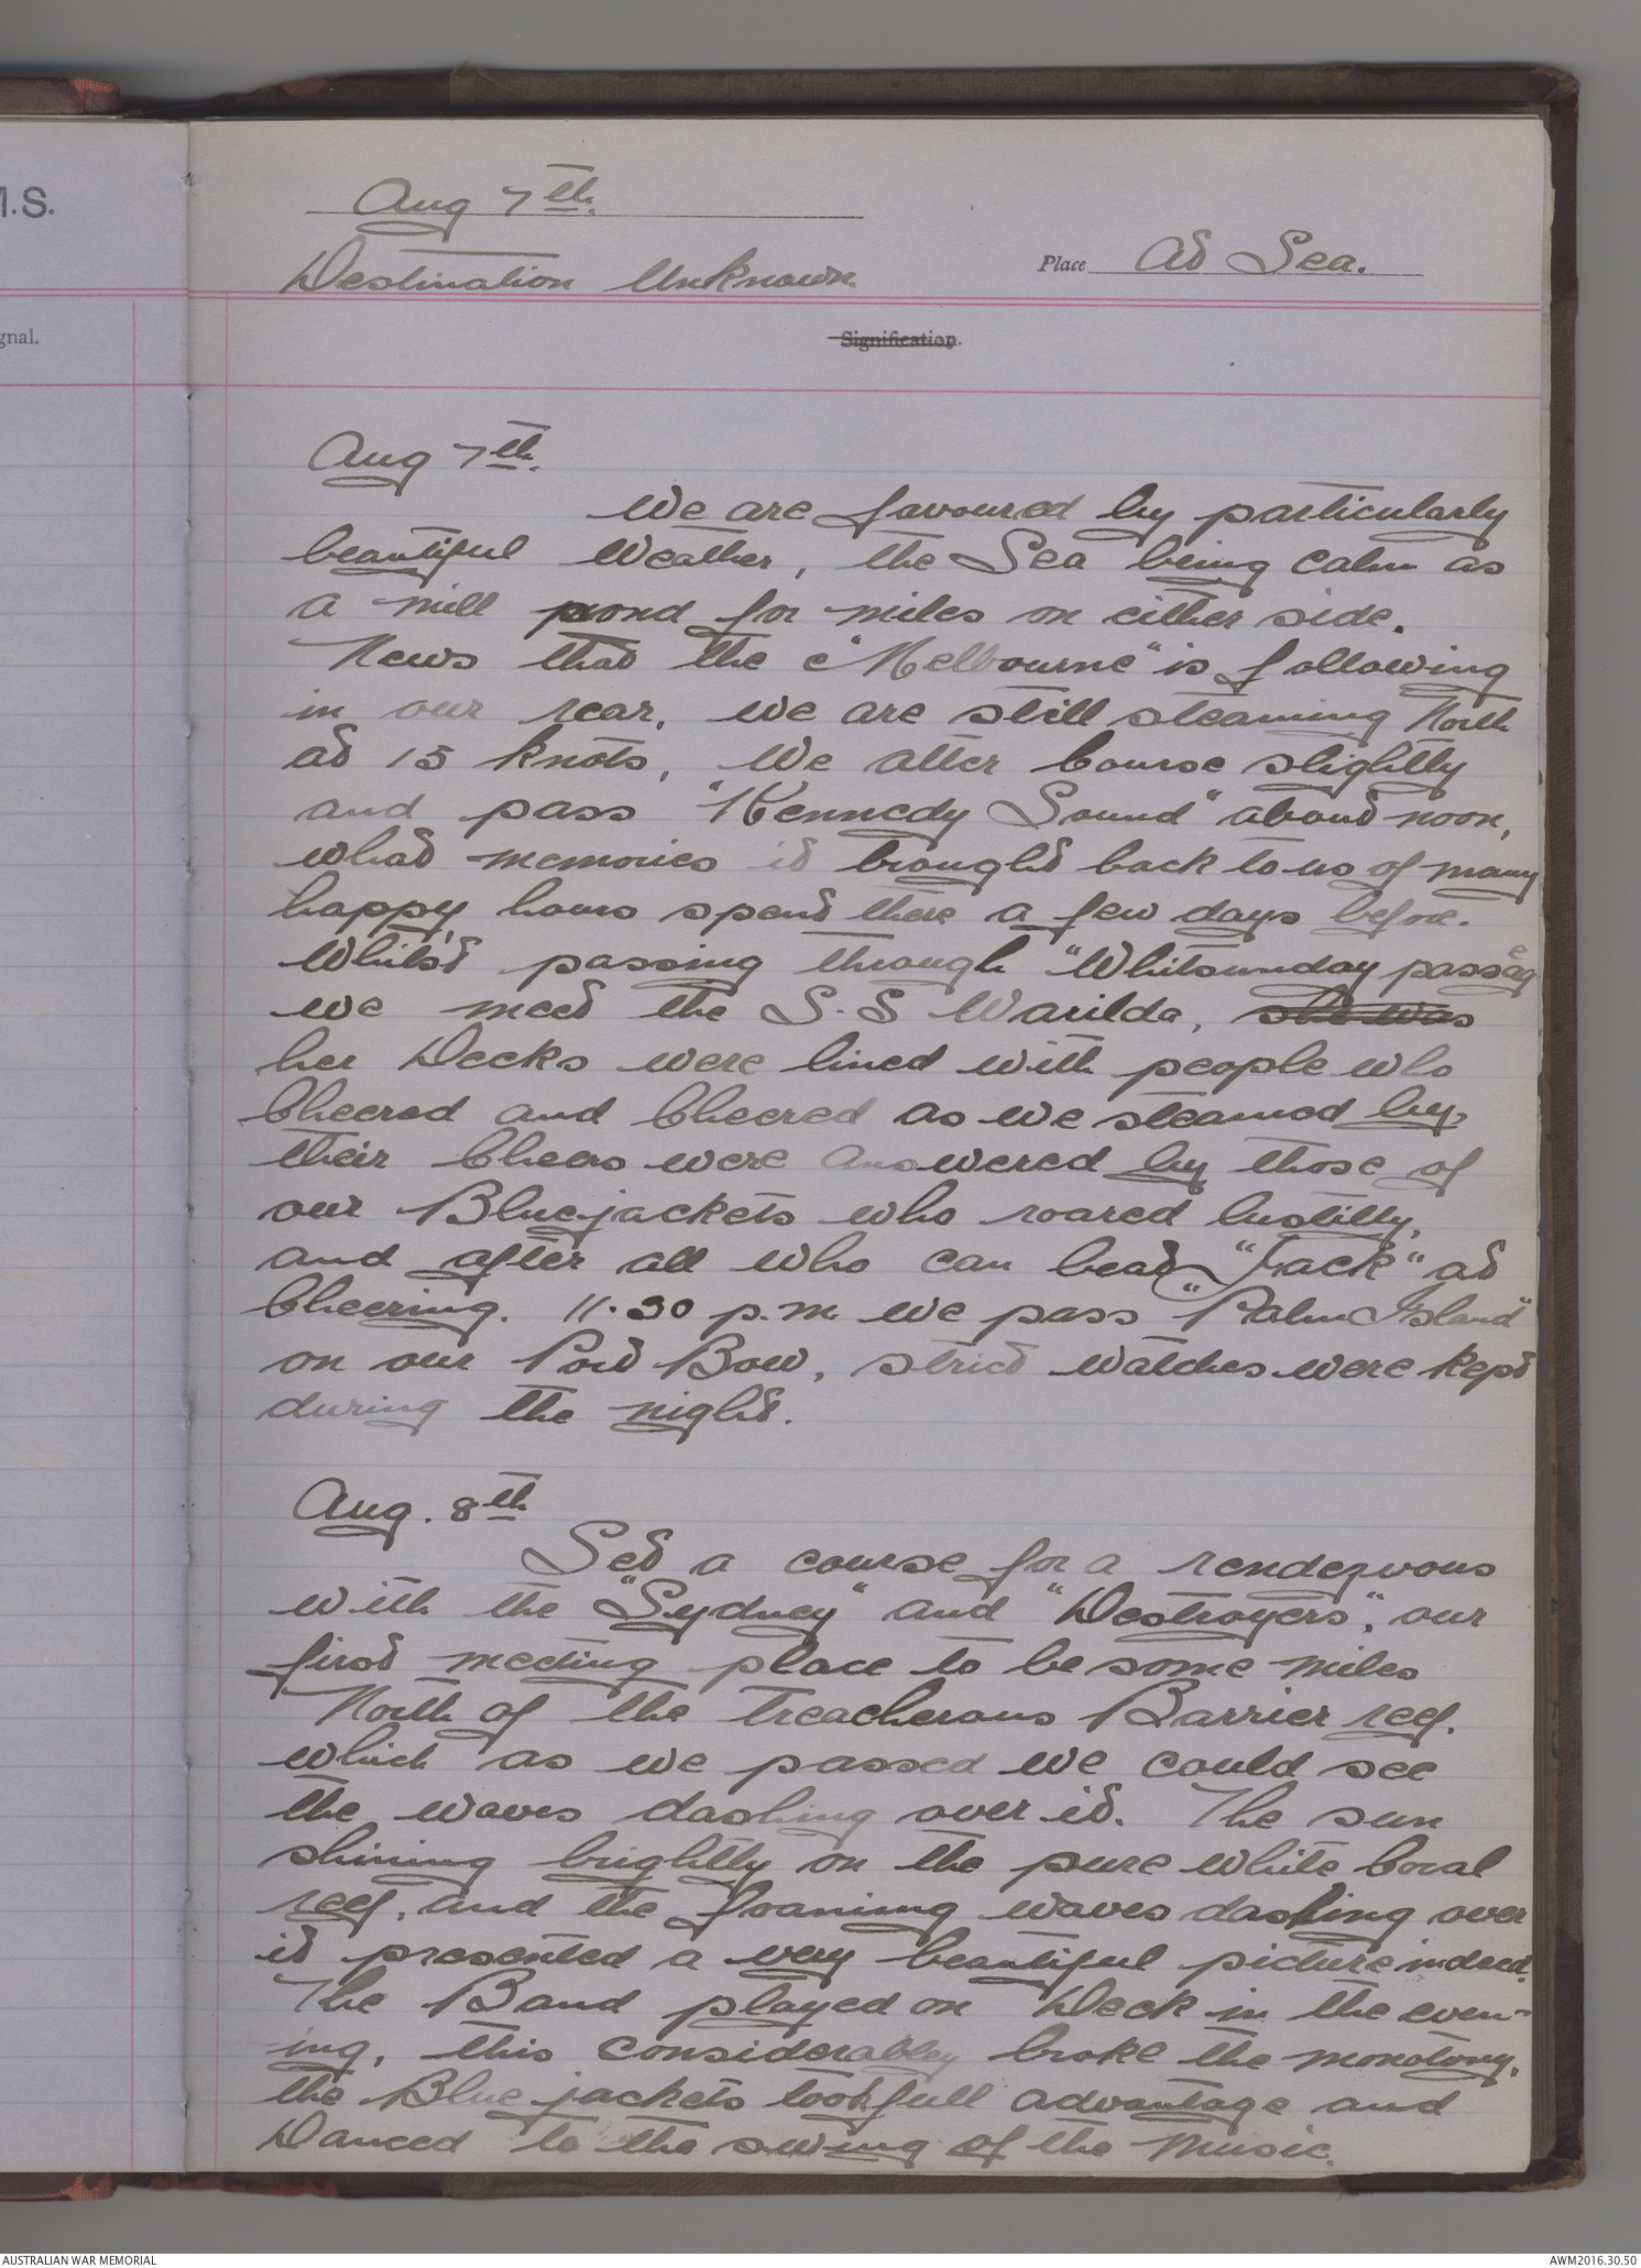 M.S.
gnal.
Aug 7th.
Destination Unknown.
Place At Sea.
Signification.
Aug 7th.
We are favoured by particularly
beautiful Weather, the Sea being calm as
a mill pond for miles on either side.
News that the "Melbourne" is following
in our rear, we are still steaming North
at 15 knots, We alter Course slightly
and pass "Kennedy Sound" about noon,
what memories it brought back to us of many
happy hours spent there a few days before.
Whils't passing through "Whitsunday passage
we meet the S.S Warilda, she was
her Decks were lined with people who
Cheered and Cheered as we steamed by,
their Cheers were answered by those of
our Bluejackets who roared lustilly,
and after all who can beat "Jack" at
Cheering. 11.30 p.m. we pass "Palm Island"
on our Port Bow, strict watches were kept
during the night.
Aug. 8th
Set a course for a rendezvous
with the "Sydney" and "Destroyers", our
first meeting place to be some miles
North of the treacherous Barrier reef.
which as we passed we could see
the waves dashing over it. The sun
shining brightlly on the pure white Coral
reef, and the foaming waves dashing over
it presented a very beautiful picture indeed.
The Band played on Deck in the even-
ing, this considerabley broke the monotony,
the Blue jackets took full advantage and
Danced to the swing of the Music.
AUSTRALIAN WAR MEMORIAL
AWM2016.30.50